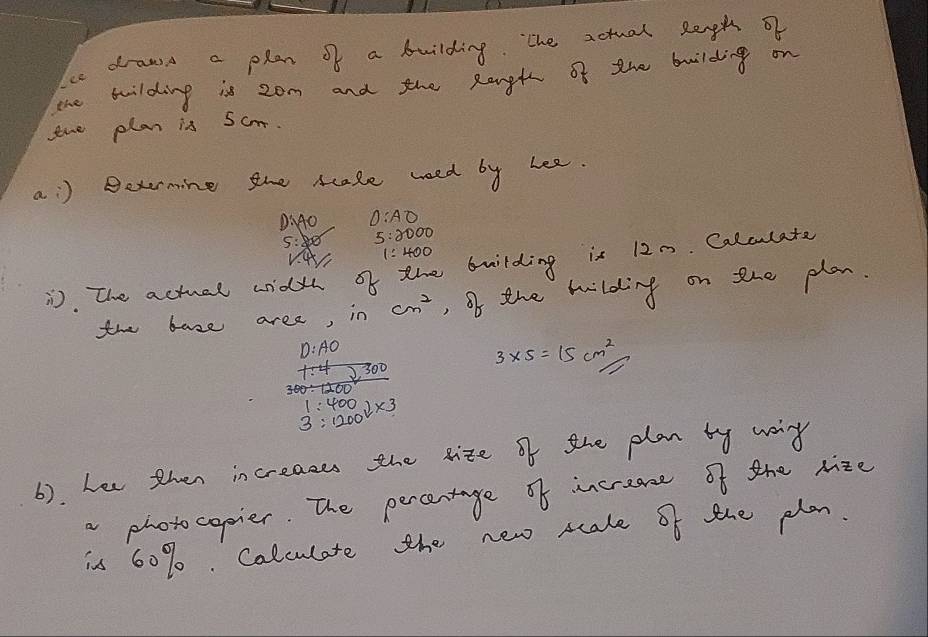 Lee draws a plan of a building. The actual length of
the building is 20m and the length of the building on
the plan is 5cm.
a i) Determine the scale used by Lee.
D:AO D:AO
5:20 5:2000
1:4 1:400
ii). The actual width of the building is 12m. Calculate
the base area, in cm², of the building on the plan.
D:AO
1:4 300 3×5=15 cm²
300:1200
1:400 ×3
3:1200
b). Lee then increases the size of the plan by using
a photocopier. The percentage of increase of the size
is 60%. Calculate the new scale of the plan.